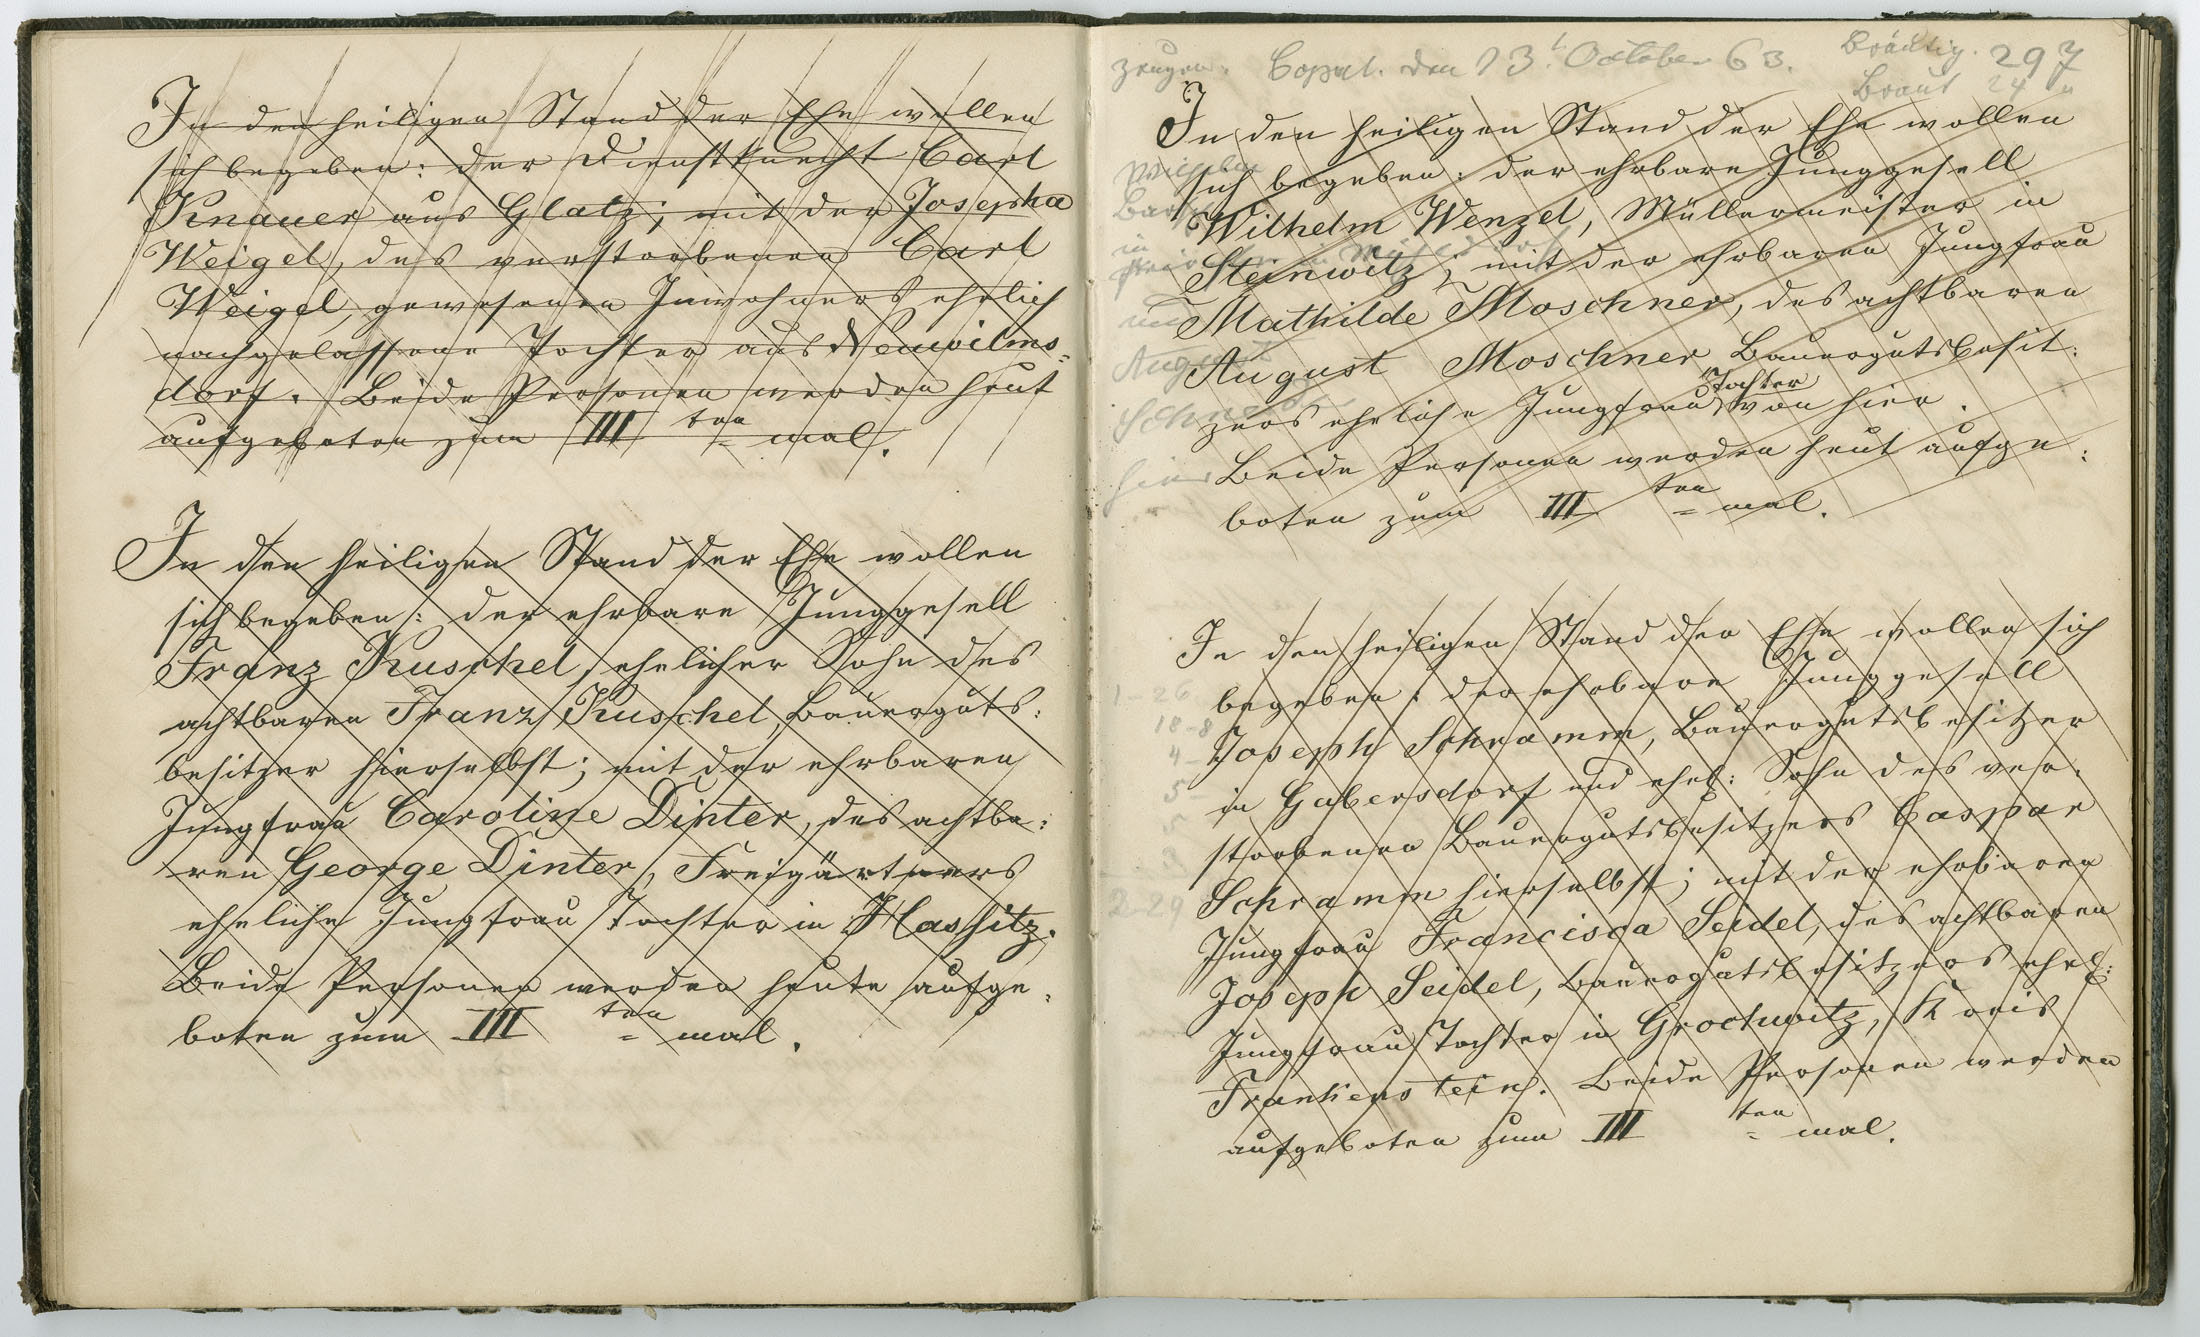 In den heiligen Stand der Ehe wollen
sich begeben: der Dienstknecht Carl
Knauer aus Glatz; mit der Josepha
Weigel, des verstorbenen Carl
Weigel, gewesenen Inwohners ehelich
nachgelassene Tochter aus Neuwilms-
dorf. Beide Personen werden heut
aufgeboten zum III ten = mal.
In den heiligen Stand der Ehe wollen
sich begeben: der ehrbare Junggesell
Franz Kuschel, ehelicher Sohn des
achtbaren Franz Kuschel, Bauerguts:
besitzer hierselbst; mit der ehrbaren
Jungfrau Caroline Dinter, des achtba:
ren George Dinter, Freigärtners
eheliche Jungfrau Tochter in Hassitz.
Beide Personen werden heute aufge:
boten zum III ten = mal.
Zeugen: Copul. den 13t October 63. Bräutig. 29 J
Braut 24 "
In den heiligen Stand der Ehe wollen
sich begeben: der ehrbare Junggesell
Wilhelm Wenzel, Müllermeister in
Steinwitz; mit der ehrbaren Jungfrau
Mathilde Moschner, des achtbaren
August Moschner Bauergutsbesit:
zers eheliche Jungfrau Tochter von hier.
Beide Personen werden heut aufge:
boten zum III ten = mal.
Wilhelm
in
und
August
hier
In den heiligen Stand der Ehe wollen sich
begeben: der ehrbare Junggesell
Joseph Schramm, Bauergutsbesitzer
in Gabersdorf und ehel: Sohn des ver:
storbenen Bauergutsbesitzers Caspar
Schramm hierselbst; mit der ehrbaren
Jungfrau Francisca Seidel, des achtbaren
Joseph Seidel, Bauergutsbesitzers ehel:
Jungfrau Tochter in Grochwitz, Kreis
Frankenstein. Beide Personen werden
aufgeboten zum III ten = mal.
1 26
18-8
4
5
5
2 29